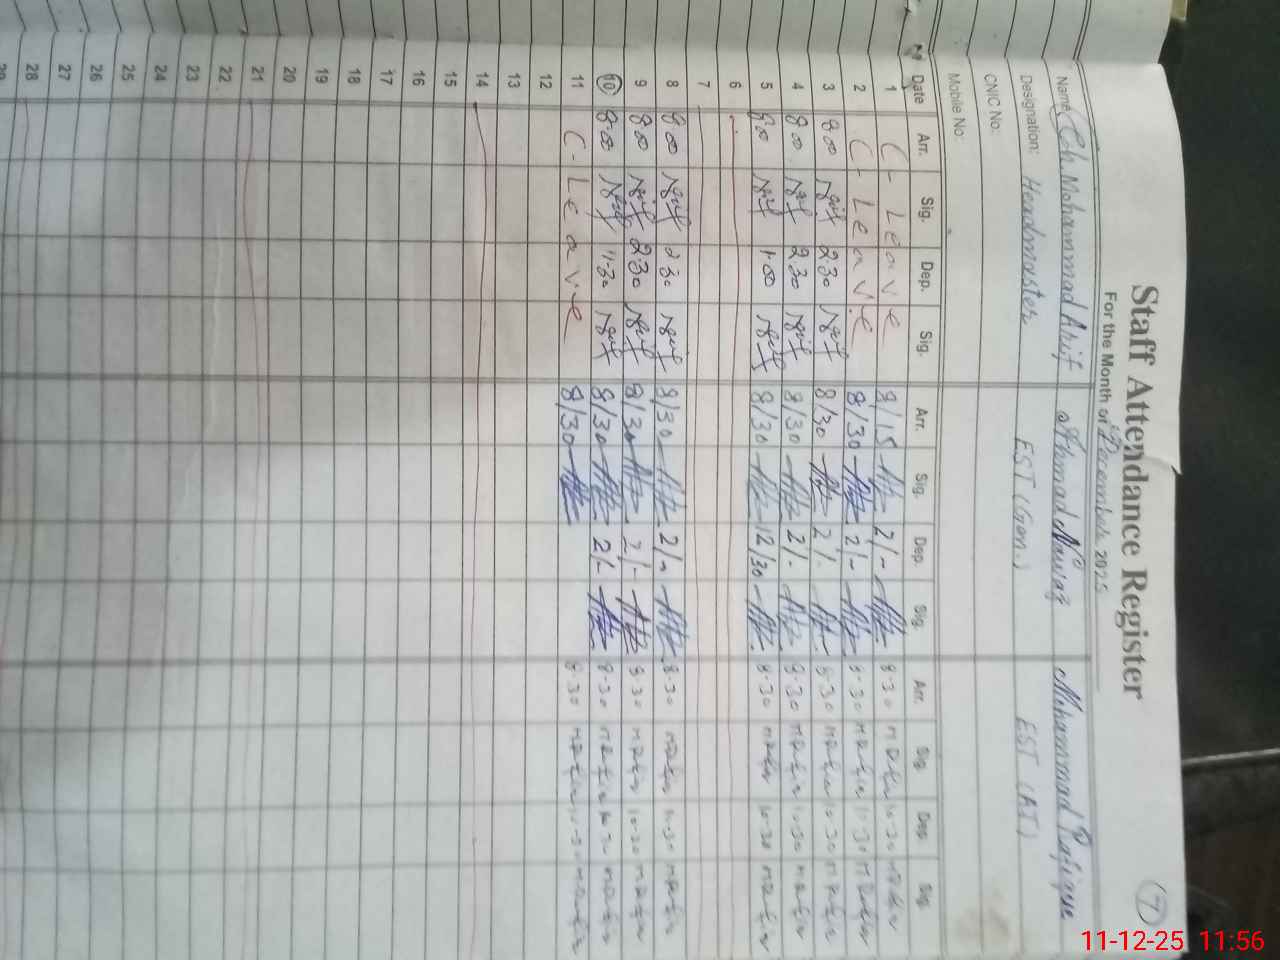 Staff Attendance Register
7
For the Month of December 2025
Name: Ch. Mohammad Arif Ahmad Nawaz Mohammad Rafique
Designation: Headmaster EST (Gen.) EST (AT)
CNIC No:
Mobile No:
Date Arr. Sig. Dep. Sig. Arr. Sig. Dep. Sig. Arr. Sig. Dep. Sig.
1 C - Leave 8/15 2/- 8.30 10.30
2 C - Leave 8/30 2/- 8.30 10.30
3 8.00 2.30 8/30 2/- 8.30 10.30
4 8.00 2.30 8/30 2/- 8.30 10.30
5 8.00 1.00 8/30 12/30 8.30 10.30
6
7
8 8.00 2.30 8/30 2/- 8.30 10.30
9 8.00 2.30 8/30 2/- 8.30 10.30
10 8.00 11.30 8/30 2/- 8.30 10.30
11 C - Leave 8/30 8.30 10.30
12
13
14
15
16
17
18
19
20
21
22
23
24
25
26
27
28
29
11-12-25 11:56